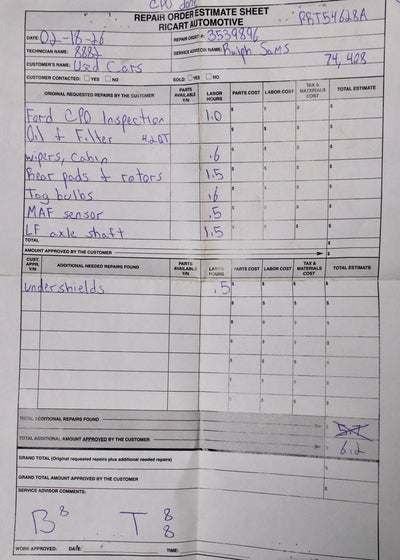 CPO done
REPAIR ORDER ESTIMATE SHEET
RICART AUTOMOTIVE
PRT54628A
DATE: 02-18-26 REPAIR ORDER #: 3539896
TECHNICIAN NAME: 8882 SERVICE ADVISOR NAME: Ralph Sams
CUSTOMER'S NAME: Used Cars 74,408
CUSTOMER CONTACTED: YES NO SOLD: YES NO
ORIGINAL REQUESTED REPAIRS BY THE CUSTOMER PARTS AVAILABLE Y/N LABOR HOURS PARTS COST LABOR COST TAX & MATERIALS COST TOTAL ESTIMATE
Ford CPO Inspection 1.0 $ $ $ $
Oil & Filter 4.2QT $ $ $ $
wipers, cabin .6 $ $ $ $
Rear pads & rotors 1.5 $ $ $ $
Tag bulbs .6 $ $ $ $
MAF sensor .5 $ $ $ $
LF axle shaft 1.5 $ $ $ $
TOTAL
AMOUNT APPROVED BY THE CUSTOMER $
CUST. APPR. Y/N ADDITIONAL NEEDED REPAIRS FOUND PARTS AVAILABLE Y/N LABOR HOURS PARTS COST LABOR COST TAX & MATERIALS COST TOTAL ESTIMATE
undershields .5 $ $ $ $
TOTAL ADDITIONAL REPAIRS FOUND 5.7
TOTAL ADDITIONAL AMOUNT APPROVED BY THE CUSTOMER 6.2
GRAND TOTAL (Original requested repairs plus additional needed repairs) $
GRAND TOTAL AMOUNT APPROVED BY THE CUSTOMER $
SERVICE ADVISOR COMMENTS:
B 8 T 8 8
WORK APPROVED: DATE: TIME: